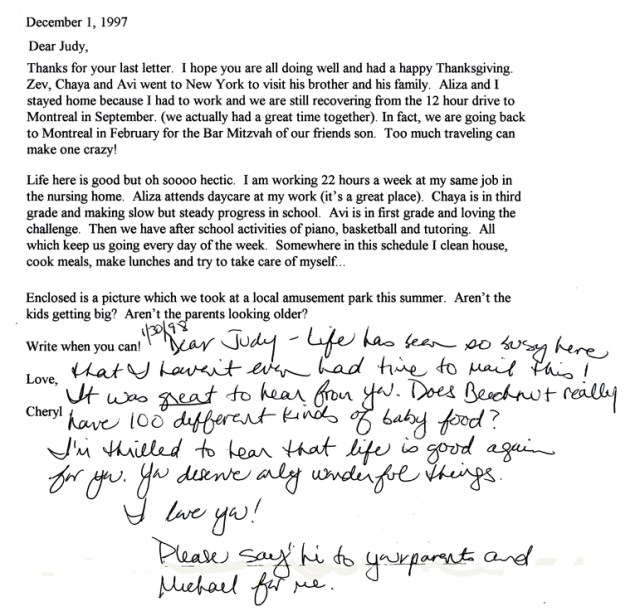 December 1, 1997
Dear Judy,
Thanks for your last letter. I hope you are all doing well and had a happy Thanksgiving.
Zev, Chaya and Avi went to New York to visit his brother and his family. Aliza and I
stayed home because I had to work and we are still recovering from the 12 hour drive to
Montreal in September. (we actually had a great time together). In fact, we are going back
to Montreal in February for the Bar Mitzvah of our friends son. Too much traveling can
make one crazy!
Life here is good but oh soooo hectic. I am working 22 hours a week at my same job in
the nursing home. Aliza attends daycare at my work (it's a great place). Chaya is in third
grade and making slow but steady progress in school. Avi is in first grade and loving the
challenge. Then we have after school activities of piano, basketball and tutoring. All
which keep us going every day of the week. Somewhere in this schedule I clean house,
cook meals, make lunches and try to take care of myself...
Enclosed is a picture which we took at a local amusement park this summer. Aren't the
kids getting big? Aren't the parents looking older?
Write when you can!
Love,
Cheryl
1/30/98
Dear Judy - Life has been so busy here
that I haven't even had time to mail this!
It was great to hear from you. Does Beechnut really
have 100 different kinds of baby food?
I'm thrilled to hear that life is good again
for you. You deserve only wonderful things.
I love you!
Please say "hi to your parents and
Michael for me.